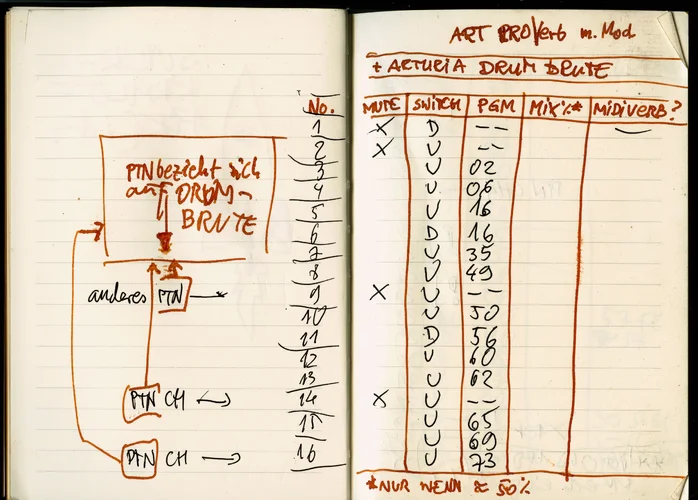 No.
1
2
3
4
5
6
7
8
9
10
11
12
13
14
15
16
PTN bezieht sich
auf DRUM-
BRUTE
anderes PTN
PTN CH →
PTN CH →
ART PROVerb m. Mod
+ ARTURIA DRUM BRUTE
MUTE SWITCH PGM MIX%* MIDIVERB?
X D --
X U --
U 02
U 06
U 16
D 16
U 35
U 49
X U --
U 50
D 56
U 60
U 62
X U --
U 65
U 69
U 73
*NUR WENN ≠ 50%